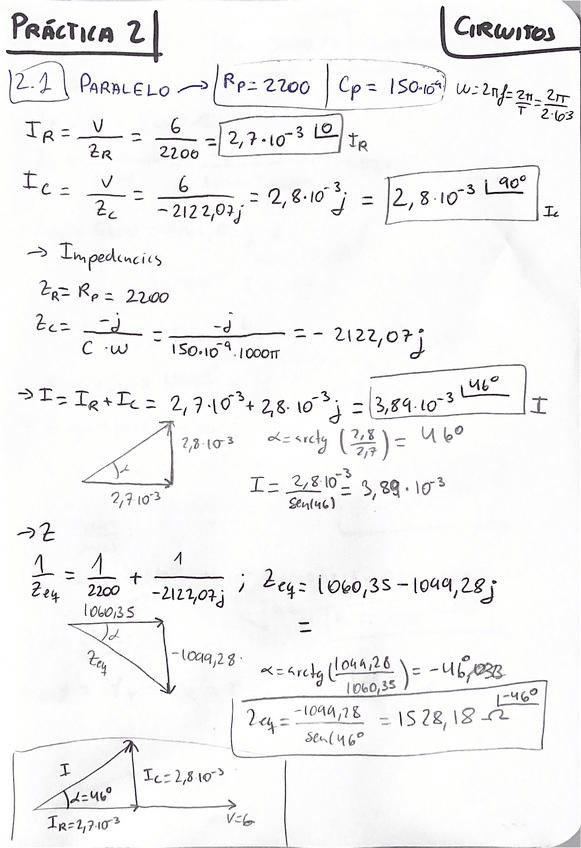 PRÁCTICA 2
CIRCUITOS
2.1 PARALELO → Rp = 2200 | Cp = 150·10⁻⁹ ω = 2πf = 2π/T = 2π/2·E-3
I_R = V/Z_R = 6/2200 = 2,7·10⁻³ |0 I_R
I_C = V/Z_C = 6/-2122,07j = 2,8·10⁻³j = 2,8·10⁻³ |90° I_C
→ Impedencias
Z_R = Rp = 2200
Z_C = -j/C·ω = -j/150·10⁻⁹·1000π = -2122,07j
→ I = I_R + I_C = 2,7·10⁻³ + 2,8·10⁻³j = 3,89·10⁻³ |46° I
2,8·10⁻³ α = arctg (2,8/2,7) = 46°
α
2,7·10⁻³ I = 2,8·10⁻³/sen(46) = 3,89·10⁻³
→ Z
1/Zeq = 1/2200 + 1/-2122,07j ; Zeq = 1060,35 - 1099,28j
1060,35 =
α
Zeq -1099,28·
α = arctg (1099,28/1060,35) = -46°
Zeq = -1099,28/sen(46° = 1528,18 Ω |-46°
I I_C = 2,8·10⁻³
α = 46°
I_R = 2,7·10⁻³ V = 6